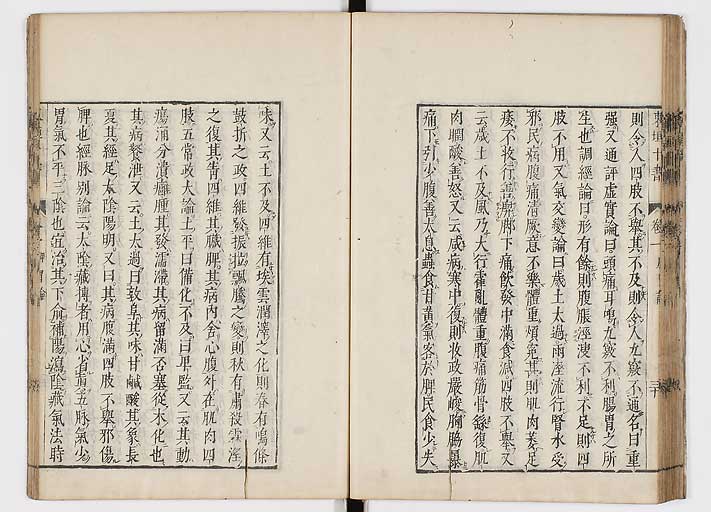 則令人四肢不舉其不及則令人九竅不通名曰重
強又通評虛實論曰頭痛耳鳴九竅不利腸胃之所
生也調經論曰形有餘則腹脹涇溲不利不足則四
肢不用又氣交變論曰歲土太過雨溼流行腎水受
邪民病腹痛清厥意不樂體重煩寃甚則肌肉萎足
痿不收行善瘈脚下痛飲發中滿食減四肢不舉又
云歲土不及風乃大行霍亂體重腹痛筋骨繇復肌
肉瞤酸善怒又云咸病寒中復則收政嚴峻胸脇暴
痛下引少腹善太息蟲食甘黃氣客於脾民食少失
味又云土不及四維有埃雲潤澤之化則春有鳴條
鼓拆之政四維發振拉飄騰之變則秋有肅殺霪淫
之復其眚四維其臟脾其病內舍心腹外在肌肉四
肢五常政大論土平曰備化不及曰卑監又云其動
瘍涌分潰癰腫其發濡滯其病留滿否塞從木化也
其病飧泄又云土太過曰敦阜其味甘鹹酸其象長
夏其經足太陰陽明又曰其病腹滿四肢不舉邪傷
脾也經脉別論云太陰藏搏者用心省眞五脉氣少
胃氣不平三陰也宜治其下俞補陽瀉陰藏氣法時
東垣十書
卷一